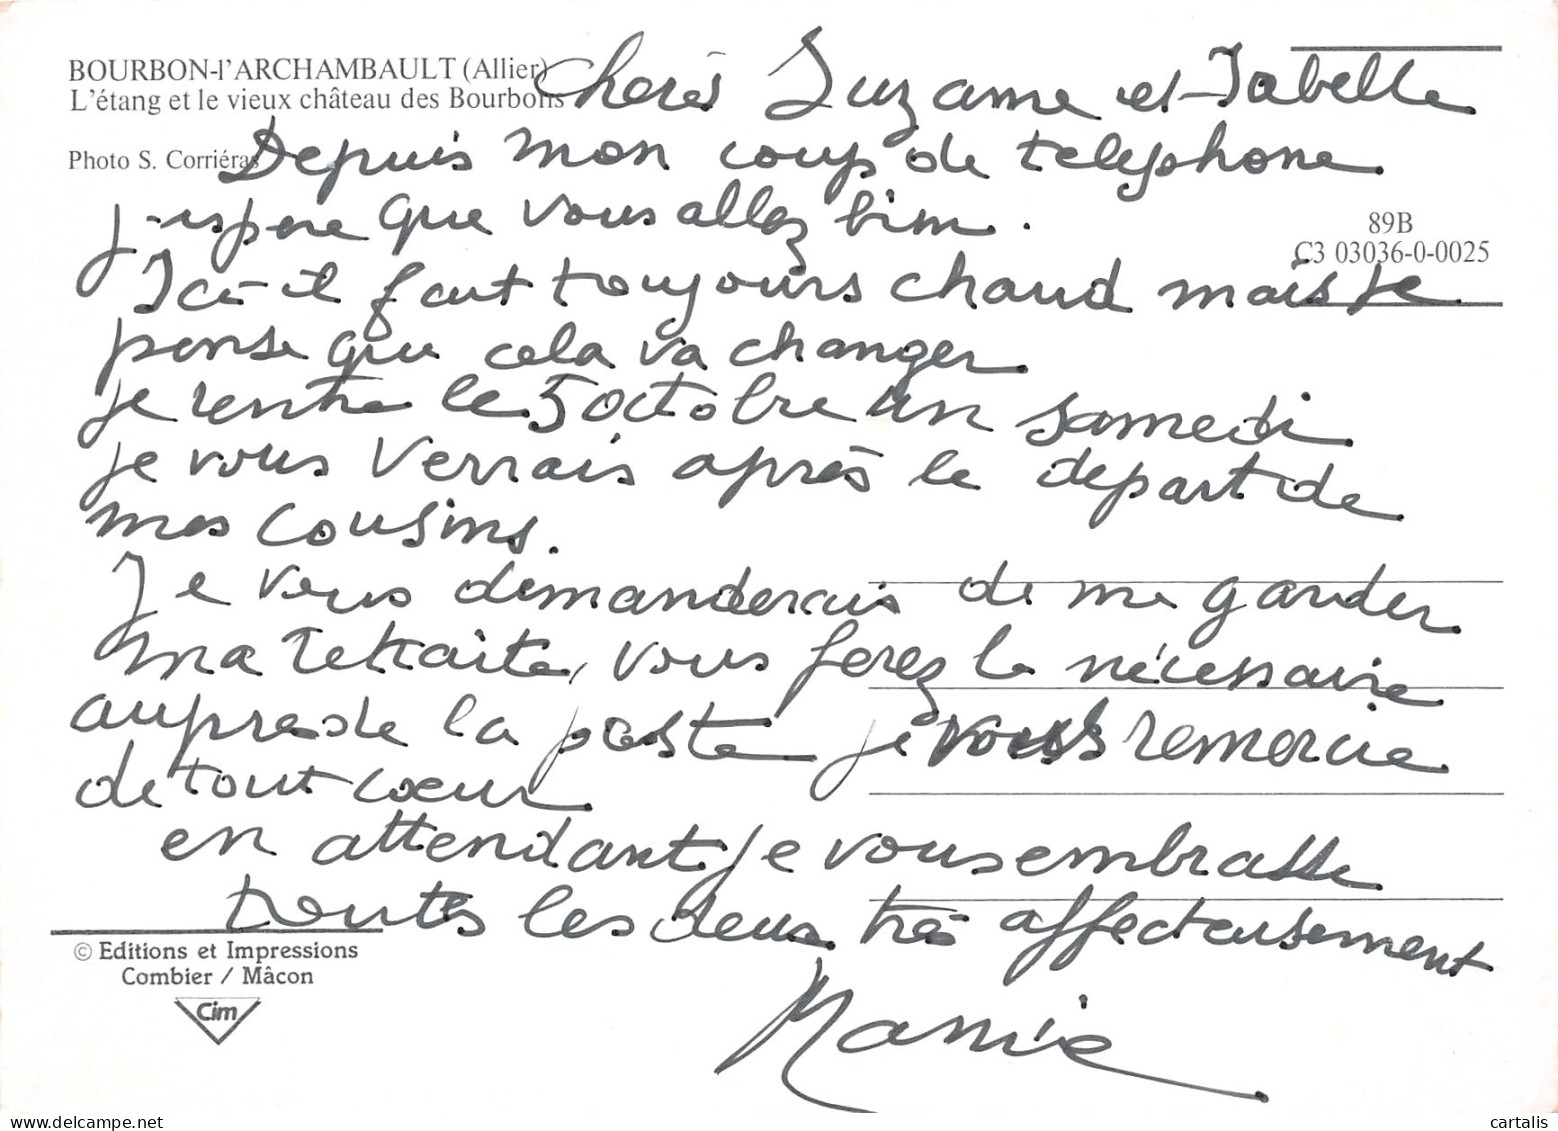 BOURBON-l'ARCHAMBAULT (Allier)
L'étang et le vieux château des Bourbons
Photo S. Corriéras
89B
C3 03036-0-0025
Cheres Suzanne et Isabelle
Depuis mon coup de telephone
j'espere que vous allez bien.
Ici il fait toujours chaud mais je
pense que cela va changer
je rentre le 5 octobre un samedi
je vous verrais après le depart de
mes cousins.
Je vous demanderais de me garder
ma retraite, vous ferez le nécessaire
aupres de la poste je vous remercie
de tout cœur
en attendant je vous embrasse
toutes les deux très affecteusement
Mamie
© Editions et Impressions
Combier / Mâcon
Cim
www.delcampe.net
cartalis